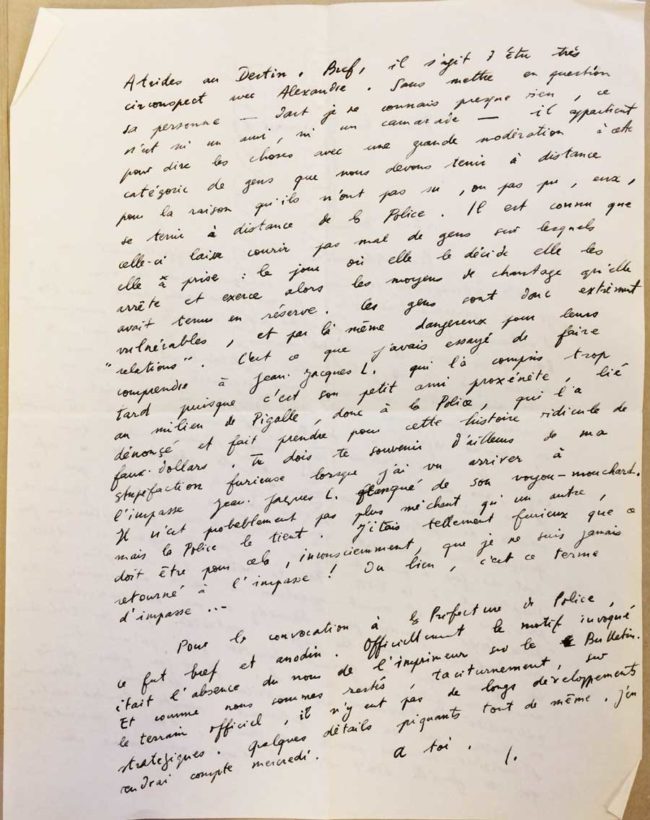 Atrides au Destin. Bref, il s'agit d'être très
circonspect avec Alexandre. Sans mettre en question
sa personne — dont je ne connais presque rien, ce
n'est ni un ami, ni un camarade — il appartient
pour dire les choses avec une grande modération à cette
catégorie de gens que nous devons tenir à distance
pour la raison qu'ils n'ont pas su, ou pas pu, eux,
se tenir à distance de la Police. Il est connu que
celle-ci laisse courir pas mal de gens sur lesquels
elle a prise : le jour où elle le décide elle les
arrête et exerce alors les moyens de chantage qu'elle
avait tenus en réserve. Ces gens sont donc extrêmement
vulnérables, et par là même dangereux pour leurs
"relations". C'est ce que j'avais essayé de faire
comprendre à Jean-Jacques L. qui l'a compris trop
tard puisque c'est son petit ami proxénète, lié
au milieu de Pigalle, donc à la Police, qui l'a
dénoncé et fait prendre pour cette histoire ridicule de
faux-dollars. Tu dois te souvenir d'ailleurs de ma
stupéfaction furieuse lorsque j'ai vu arriver à
l'impasse Jean-Jacques L. flanqué de son voyou-mouchard.
Il n'est probablement pas plus méchant qu'un autre,
mais la Police le tient. J'étais tellement furieux que ce
doit être pour cela, inconsciemment, que je ne suis jamais
retourné à l'impasse ! Ou bien, c'est ce terme
d'impasse ...
Pour la convocation à la Préfecture de Police,
ce fut bref et anodin. Officiellement le motif invoqué
était l'absence du nom de l'imprimeur sur le Bulletin.
Et comme nous sommes restés, taciturnement, sur
le terrain officiel, il n'y eut pas de longs développements
stratégiques. Quelques détails piquants tout de même. J'en
rendrai compte mercredi. A toi. J.